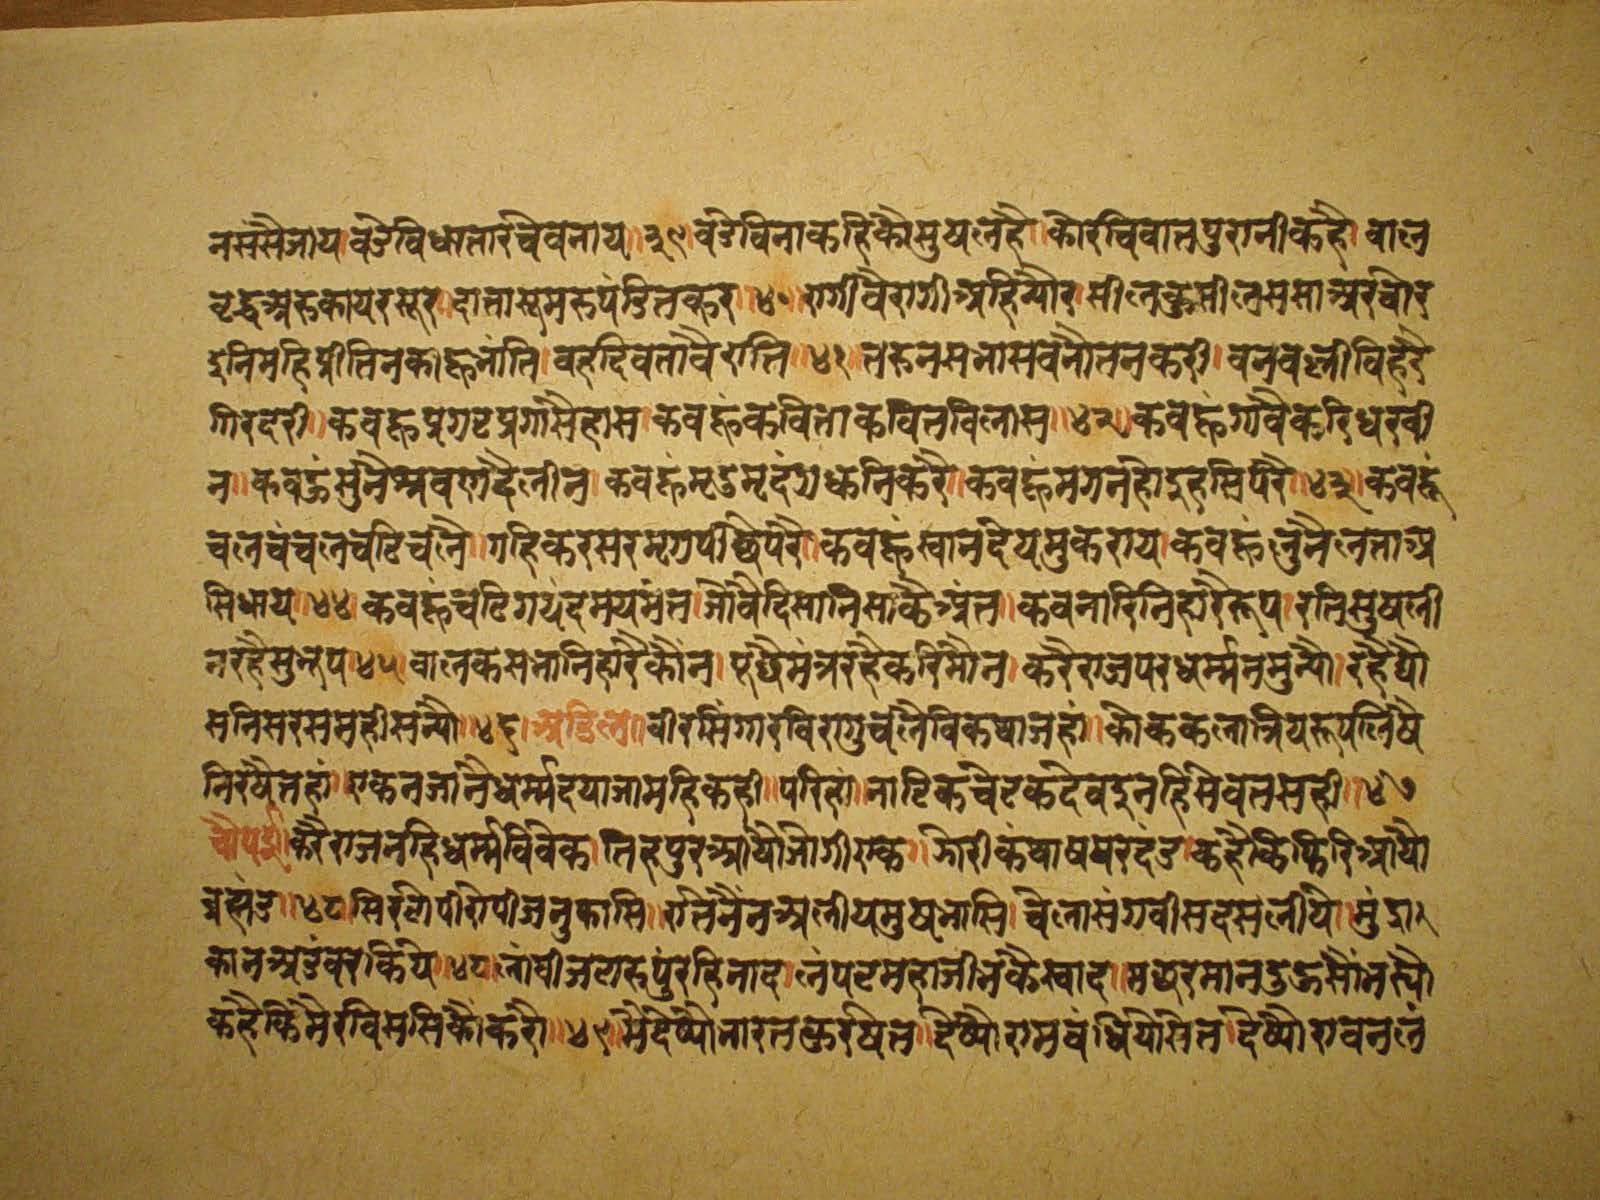 नससैजाय।वडेविधातारचेबनाय॥३९॥वडेविनाकहिकौसुषलहै।कौरचिवातपुरानीकहै।बाल
वृद्धअरुकायरसूर।दातासूमरुपंडितकूर॥४०॥रागीवैरागीअहिन्यौर।सीलकुसीलससाअंरचोर
इनिमहिप्रीतिनकाहूभांति।बहदिबताबैराति॥४१॥तरुनसभासबनौतनकरी।वनवल्लीविहरै
गिरदरी॥कबहूप्रगटप्रगासैहास।कबहूंकविताकवितविलास॥४२॥कबहूंगावैकरिधरबी
न॥कबहूंसुनैश्रवणदैलीन।कबहूंमृडमृदंगधुनिकरै।कबहूंमगनहोइहसिपरै॥४३॥कबहूं
चलचंचलचटिचलै॥गहिकरसरमृगपीछैपरै।कबहूंस्वानदेयमुकराय।कबहूंलुनैलताअ
सिधाय॥४४॥कबहूंचटिगयंदमयमंत।जोवैदिसानिसाकैअंत॥कबनारिनिहारैरूप।रतिसुषली
नरहैसुनृप॥४५॥बालकसभानिहारैकौंन।पूछैमंत्ररहैकरिमौन।करैराजपरधर्म्मनमुन्यौ।रहैयौ
सनिसरसमहीसन्यौ॥४६॥अडिल॥वीरसिंगारविरागुचलैविकथाजहां॥कोककलात्रियरूपलिषै
निरषैतहां॥एकनजांनैधर्म्मदयाजामहिकही॥परिहां॥नाटिकचेटकदेवदुनहिंसेवतसही॥४७
चौपई॥करैराजनहिधर्म्मविवेक॥तिहपुरआयौजोगीएक॥झोरीकंथाषपरदंड।कहैकिफिरिआयौ
ब्रह्मंड॥४८॥सिरटोपीरोपीजनुकासि॥रातेनैनअलीयमुषभासि।चेलासंगवीसदसलीये।मुंद्रा
कानअडंबरकिये॥४८॥लांबीजटारूपुंरहिनाद।लंपटमहाजीभकैस्वाद।मछरमानदुऊसौंभस्यौ
कहैकिमैरविससिकौंकरौ॥४९॥मैदेष्यौभारतकुरषेत।देष्यौरामबंधियौसेत।देष्यौरावनलं